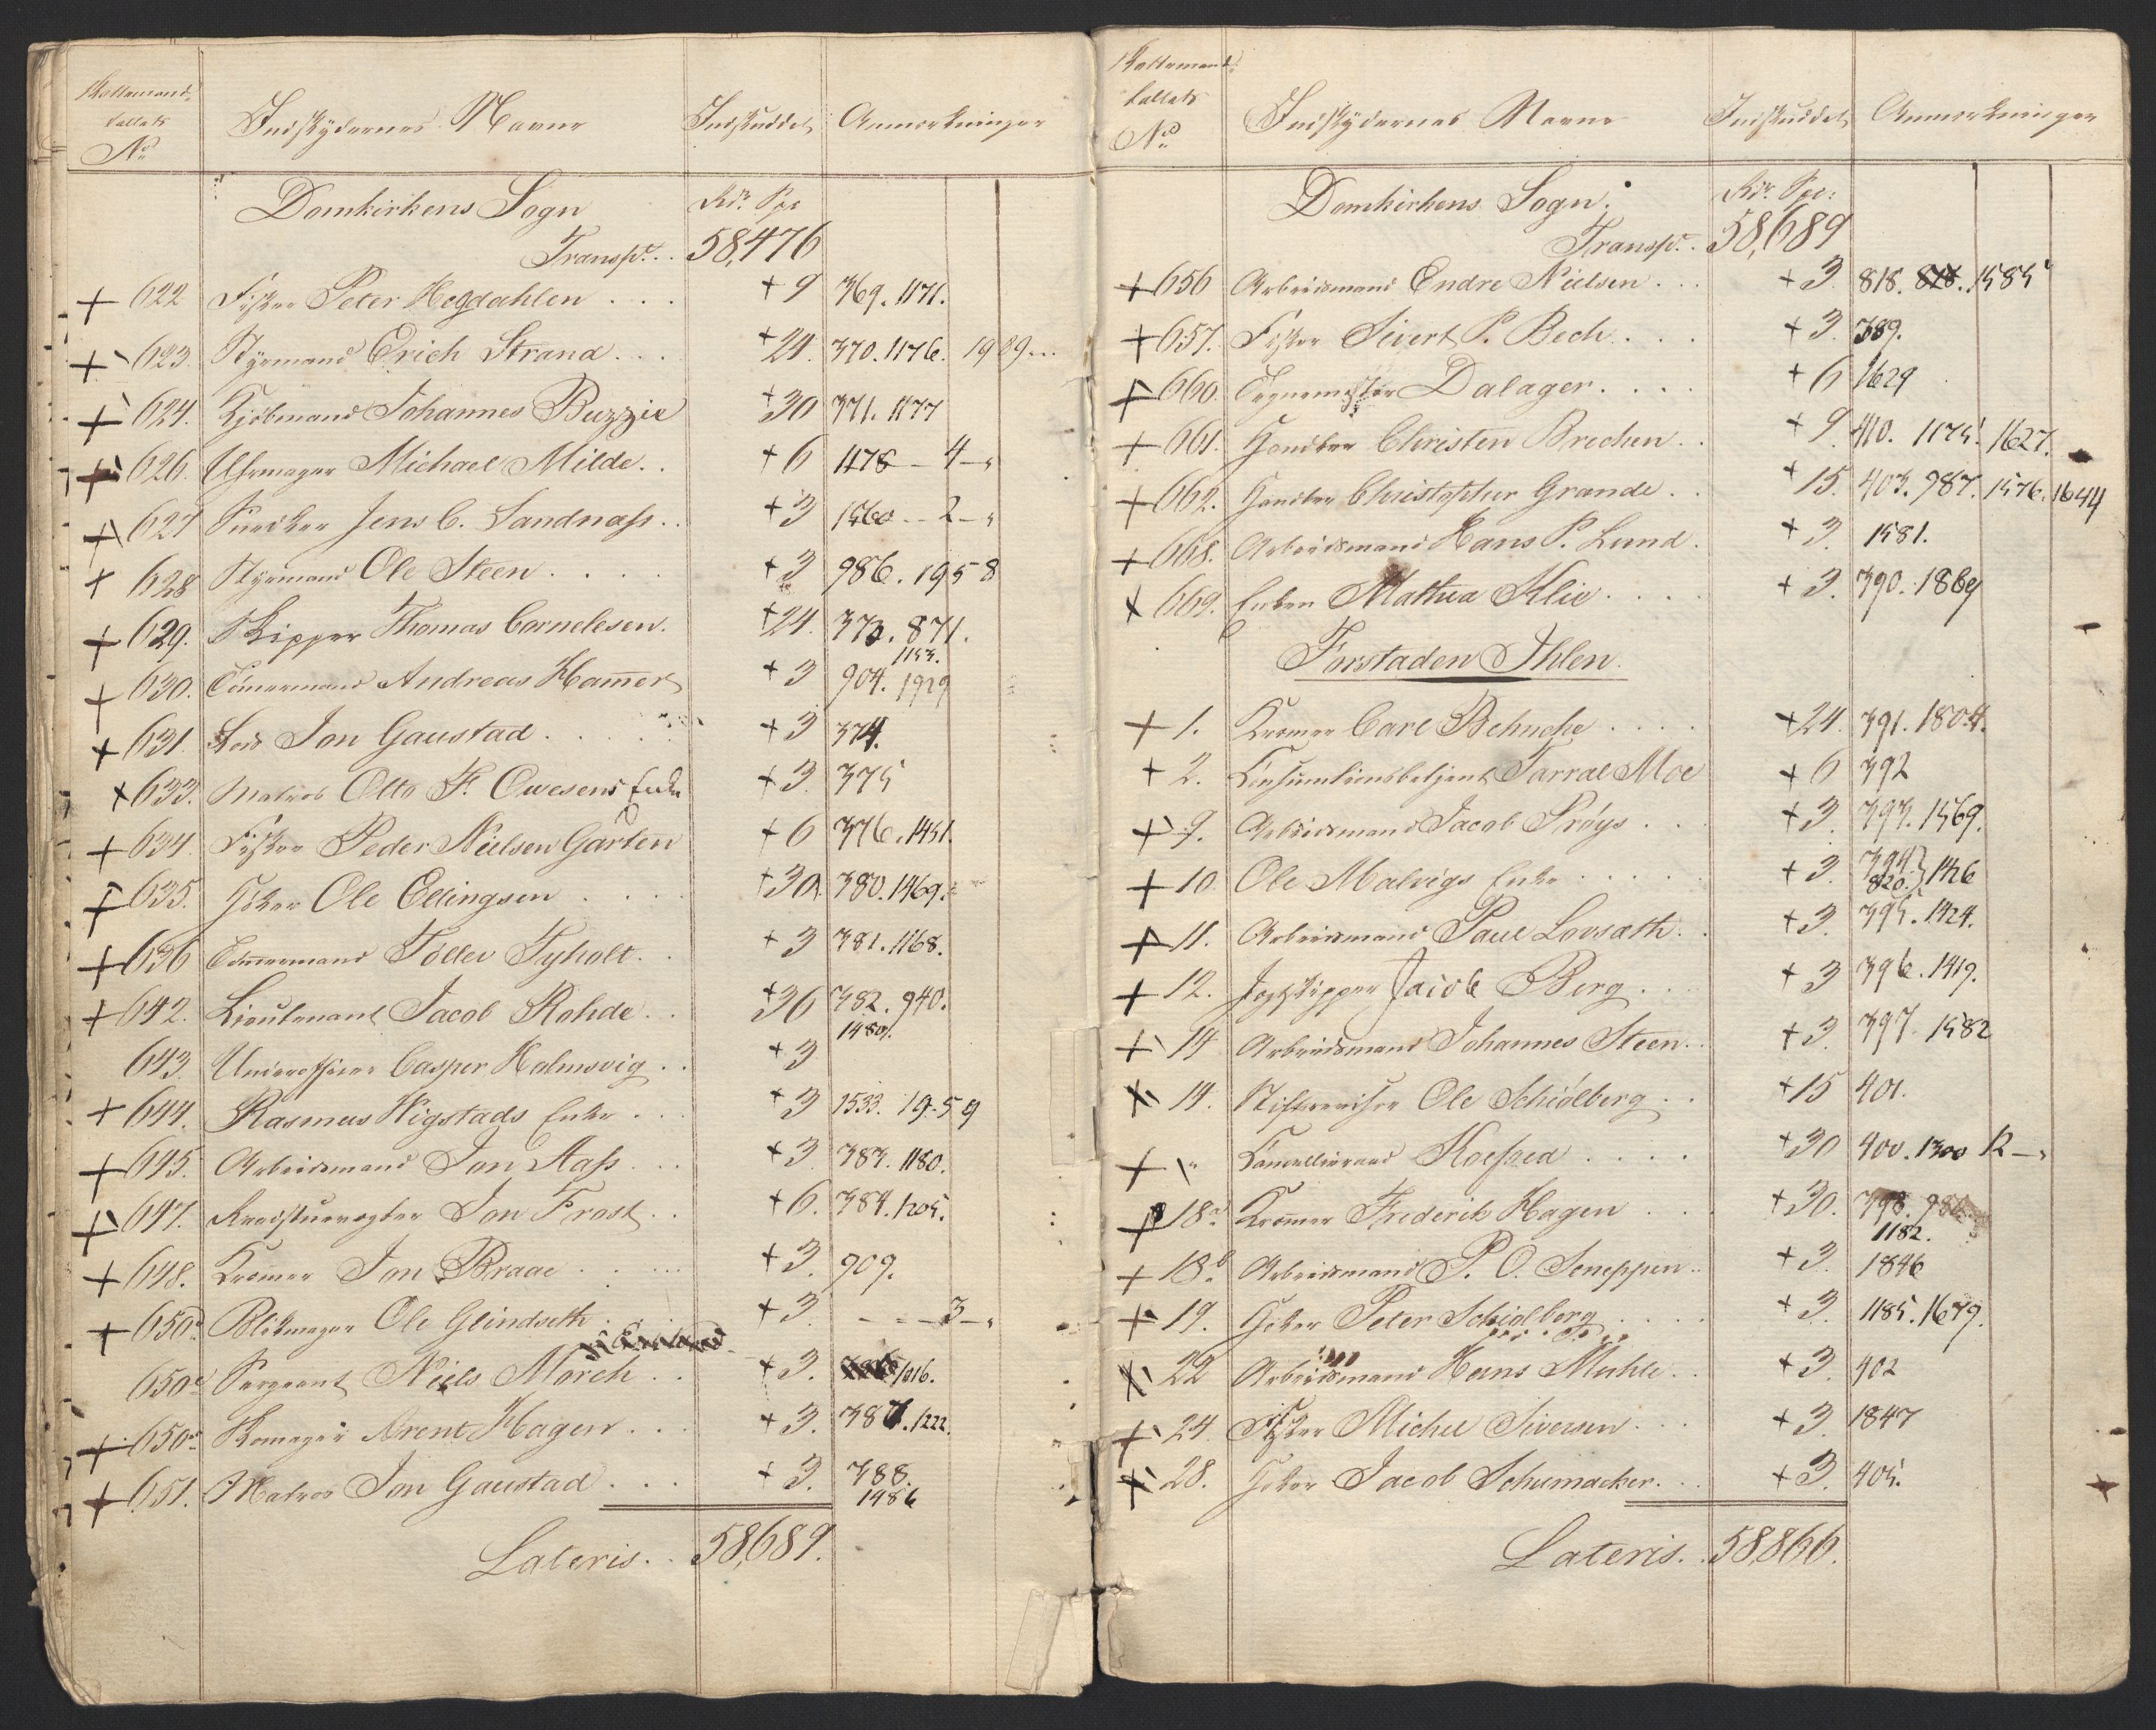 Skattemand-
tallets
No
Indskydernes Navne
Indskuddet
Anmerkninger
Domkirkens Sogn
Rdr. Spe
Transpt. . 58,476
+ 622 Fisker Peter Hegdahlen . . . + 9 369. 1171.
+ 623. Styrmand Erich Strand . . . + 24. 370. 1176. 1989...
+ 624. Kjøbmand Johannes Buzzie + 30 371. 1177
+ 626. Uhrmager Michael Milde . . + 6 1178 - 4 -"
+ 627 Snedker Jens C. Sandnass . . + 3 1560 - - 2 -"
+ 628 Styrmand Ole Steen . . . . + 3 986. 1958
+ 629. Skipper Thomas Cornelesen. + 24. 373. 871.
1153.
+ 630. Tömermand Andreas Hamer + 3 904. 1929
+ 631. Lods Jon Gaustad . . . . + 3 374.
+ 633. Matros Otto F. Owesens Enke + 3. 375
+ 634. Fisker Peder Nielsen Garten + 6 376. 1451.
+ 635. Høker Ole Ellingsen . . . . + 30. 380. 1469.
+ 636 Tömmermand Toller Tyholt . . + 3 381. 1168.
+ 642. Lieutenant Jacob Rohde . . + 36 382. 940.
1480.
643. Underofficer Casper Halmsvig . . + 3
+ 644. Rasmus Wigstads Enke . . . + 3 1533. 19-59
+ 645. Arbeidsmand Jon Aass . . . + 3. 383. 1180.
+ 647. Raadstuevogter Jon Frost . . + 6. 384. 1205.
+ 648. Kræmer Jon Braae . . . . + 3. 909.
+ 650a Blikmager Ole Glindseth . . + 3. - - - 3 -"
650 Sergeant Niels Morch . . + 3. 1016.
+ 650 Skomager Arent Hagen . . . + 3. 387. 1222.
+ 651. Matros Jon Gaustad . . . + 3. 388.
1486
Lateris. . 58,689.
Skattemand-
tallets
No
Indskydernes Navne
Indskuddet
Anmerkninger
Domkirkens Sogn.
Rdr. Spe:
Transpt. . 58,689
+ 656 Arbeidsmand Endre Nielsen . . . + 3. 818. 878. 1585
+ 657. Fisker Sivert P. Bech . . . . + 3. 389.
+ 660. Tegnemester Dalager . . . . + 6 1629
+ 661. Handler Christen Brechen . . + 9. 410. 1175. 1627.
+ 662. Handler Christopher Grande . . + 15. 403. 987. 1576. 1644
+ 668. Arbeidsmand Hans P. Lund . + 3. 1581.
+ 669. Enken Mathea Klie . . . . + 3. 390. 1869
Forstaden Ihlen.
+ 1. Kræmer Carl Behncke . . . . + 24. 391. 1804.
+ 2. Consumtionsbetjent Tarral Moe + 6 392
+ 9. Arbeidsmand Jacob Prøys . . . + 3. 393. 1569.
+ 10. Ole Malvigs Enke . . . . . + 3. 394
820. } 1426
+ 11. Arbeidsmand Paul Lovsath . . + 3. 395. 1424.
+ 12. Jagtskipper Jacob Berg . . . + 3 396. 1419.
+ 14 Arbeidsmand Johannes Steen . . + 3. 397. 1582
+ 14. Stiftsrevisor Ole Schiølberg . . + 15 401.
+ " Cancelliraad Koefoed . . . . + 30 400. 1300 12 -"
+ 18a Kræmer Frederik Hagen . . . + 30. 398. 980.
1182.
+ 18b Arbeidsmand P. O. Seneppen . . + 3. 1846
+ 19. Høker Peter Schiølberg . . . . + 3. 1185. 1679.
+ 22 Arbeidsmand Hans Muhle . . + 3. 402
+ 24 Fisker Michel Siversen . . . + 3. 1847
+ 28. Høker Jacob Schumacker . . . + 3. 405.
Lateris. . 58,866.